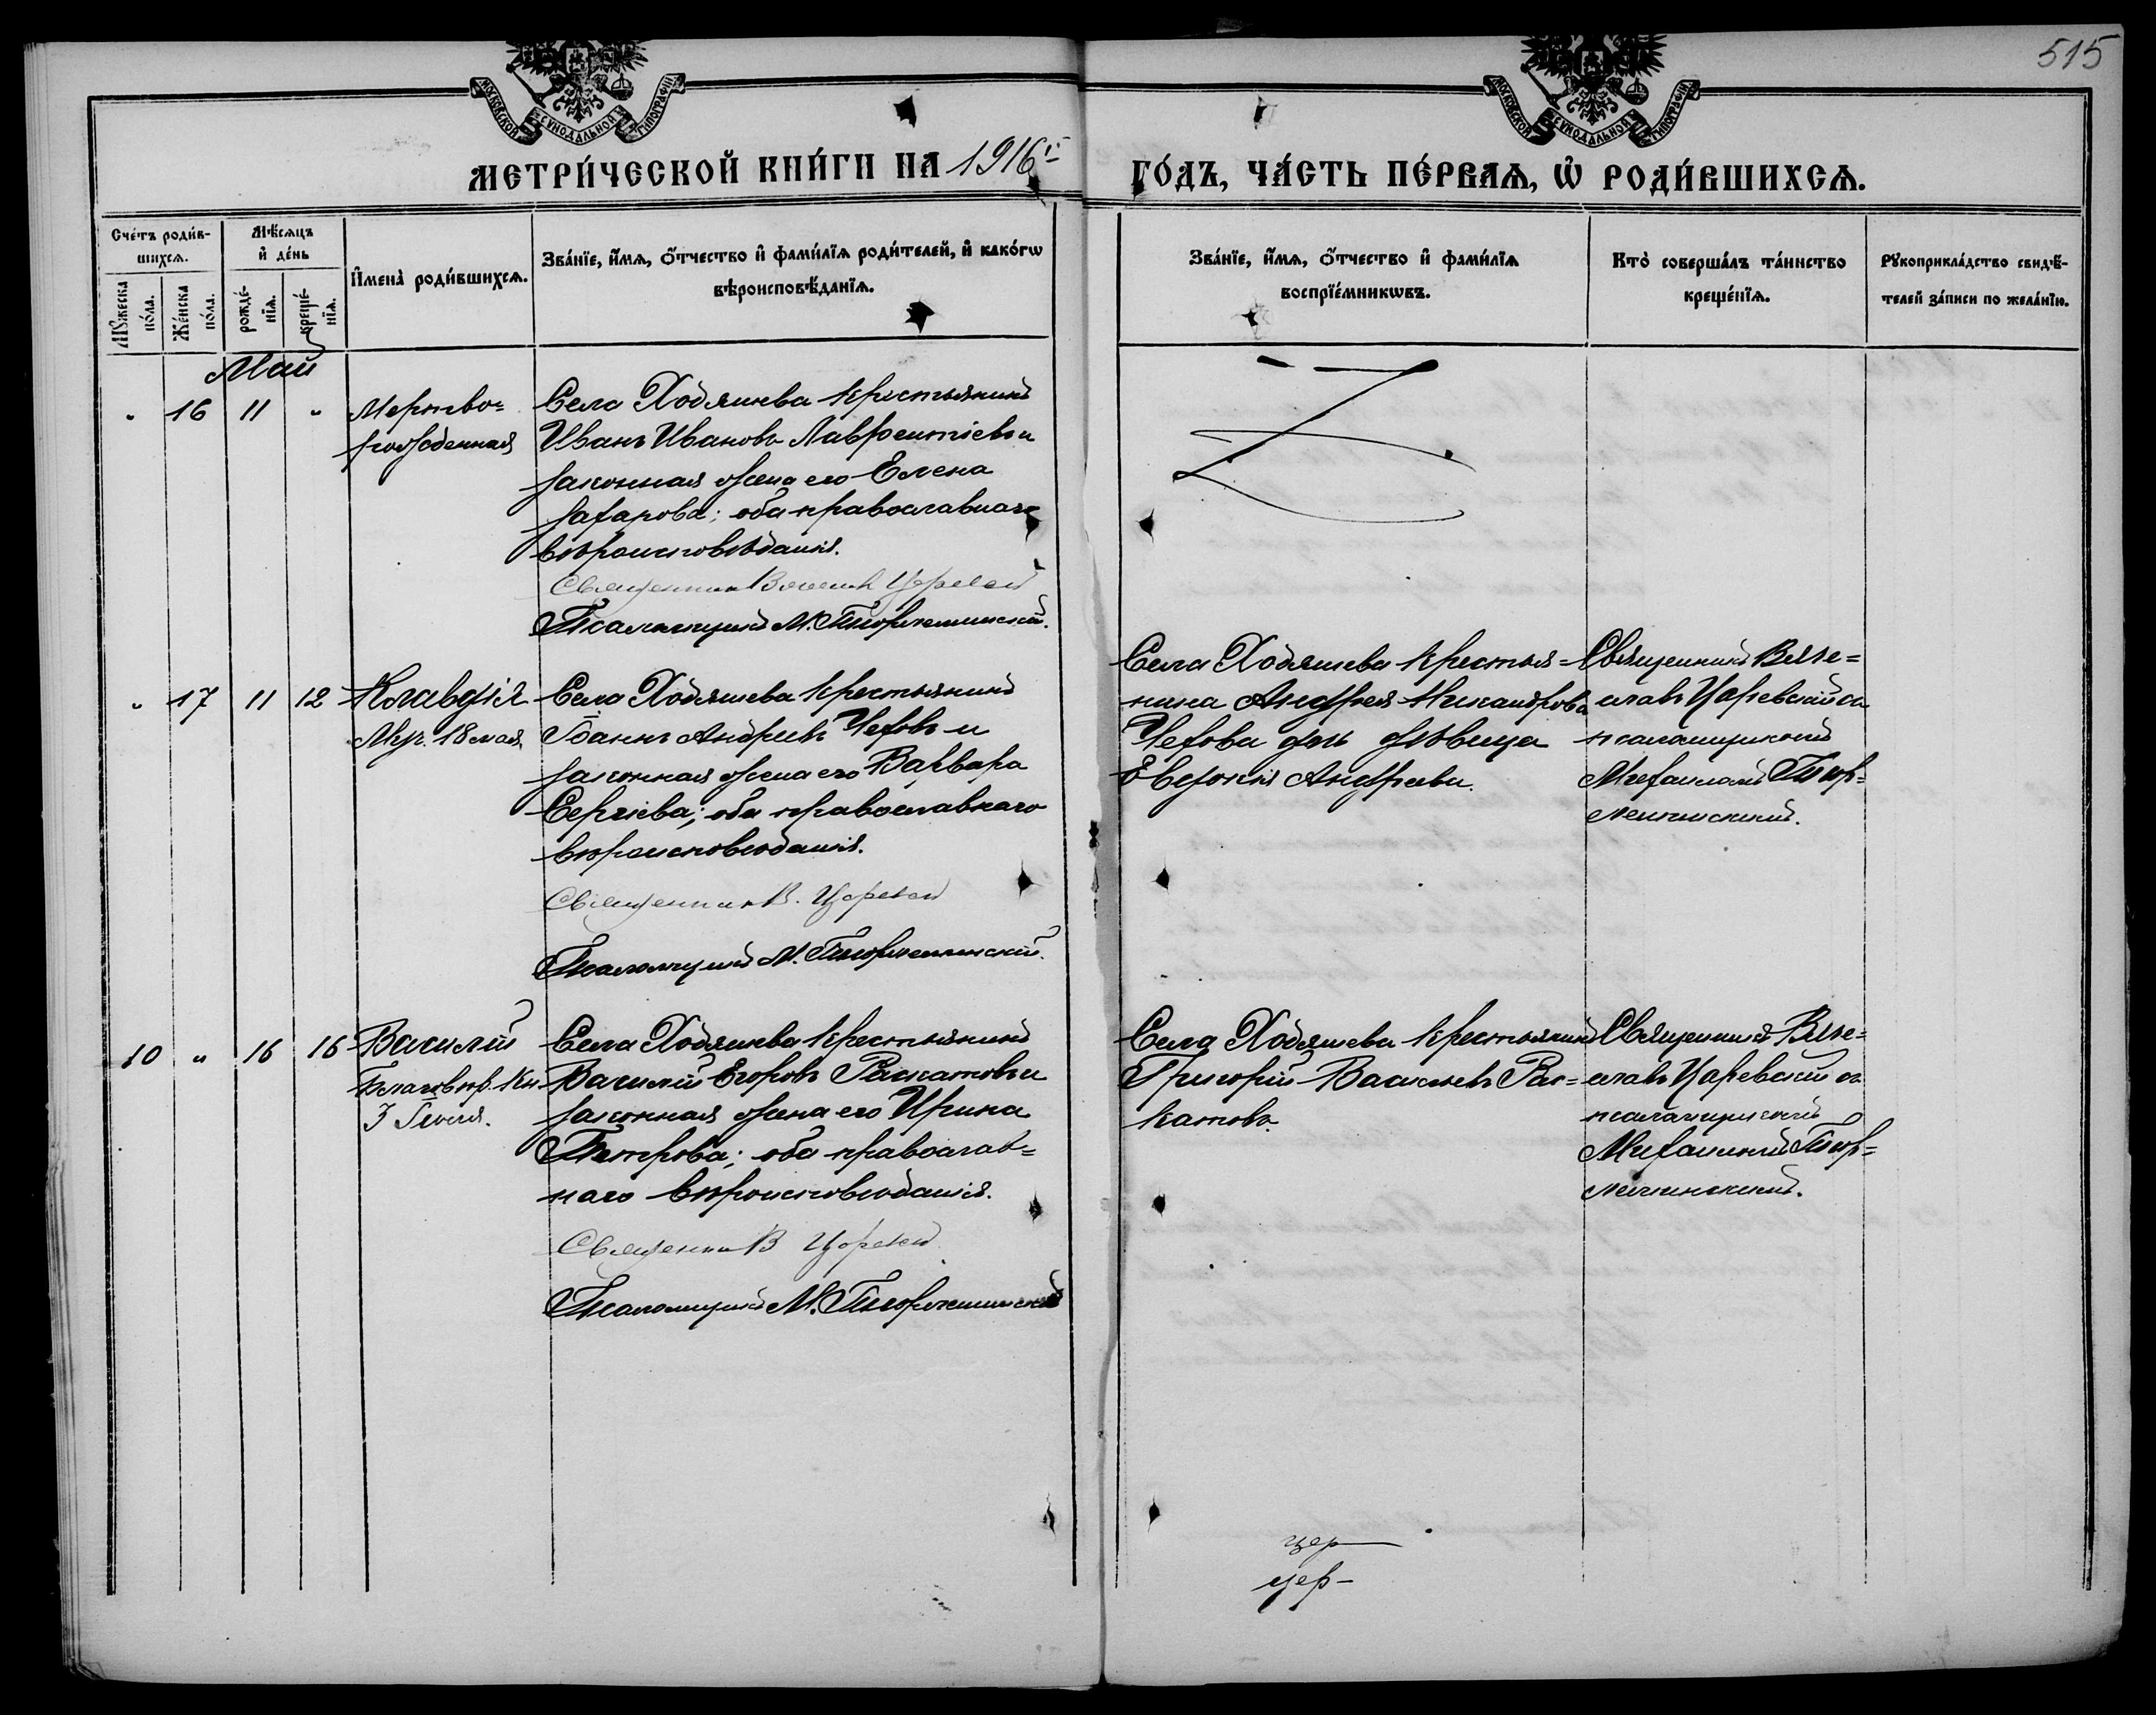 515
МОСКОВСКОЙ СѴНОДАЛЬНОЙ ТИПОГРАФІИ
МОСКОВСКОЙ СѴНОДАЛЬНОЙ ТИПОГРАФІИ
МЕТРИ́ЧЕСКОЙ КНИ́ГИ НА 1916й ГО́ДЪ, ЧА́СТЬ ПЕ́РВАѦ, Ѡ҆ РОДИ́ВШИХСѦ.
Сче́тъ роди́в-
шихсѧ.
Мꙋ́жеска по́ла.
Же́нска по́ла.
Мѣ́сѧцъ
и҆ де́нь
рожде́-нїѧ.
креще́-нїѧ.
И҆мена̀ роди́вшихсѧ.
Зва́нїе, и҆́мѧ, ѻ҆́тчество и҆ фами́лїѧ роди́телей, и҆ како́гѡ
вѣроисповѣ́данїѧ.
Зва́нїе, и҆́мѧ, ѻ҆́тчество и҆ фами́лїѧ
воспрїе́мникѡвъ.
Кто̀ соверша́лъ та́инство
креще́нїѧ.
Рꙋкоприкла́дство свидѣ́-
телей за́писи по жела́нїю.
Май
" 16 11 " Мертво=
рожденная
Села Ходяшева крестьянинъ
Иванъ Ивановъ Лаврентіевъ и
законная жена его Елена
Захарова; оба православнаго
вѣроисповѣданія.
Священник Вячеслав Царевский
Псаломщикъ М.
" 17 11 12 Клавдія
Муч. 18 мая.
Села Ходяшева крестьянинъ
Іоаннъ Андреевъ Чеховъ и
законная жена его Варвара
Сергіева; оба православнаго
вѣроисповѣданія.
Священник В. Царевский
Псаломщикъ М.
Села Ходяшева крестья=
нина Андрея Никандрова
Чехова дочь дѣвица
Евдокія Андреева.
Священникъ Вяче=
славъ Царевскій съ
псаломщикомъ
Михаиломъ
10 " 16 16 Василій
Благовѣр. Кн.
3 Іюля.
Села Ходяшева крестьянинъ
Василій Егоровъ Раскатовъ и
законная жена его Ирина
Петрова; оба православ=
наго вѣроисповѣданія.
Священник В Царевский
Псаломщикъ М.
Села Ходяшева крестьянинъ
Григорій Васильевъ Рас=
катовъ.
Священникъ Вяче=
славъ Царевскій съ
псаломщикомъ
Михаиломъ